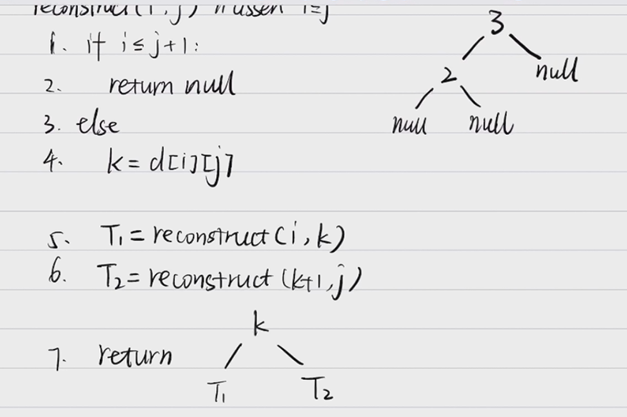 reconstruct(i,j) müssen i=j
1. if i≤j+1:
2. return null
3. else
4. k=d[i][j]
5. T₁=reconstruct(i,k)
6. T₂=reconstruct(k+1,j)
7. return
k
T₁ T₂
3
2 null
null null